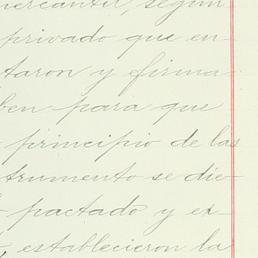 mercantil, según
privado que en-
taron y firma-
ben para que
principio de las
trumento se die-
pactado y ex-
, establecieron la